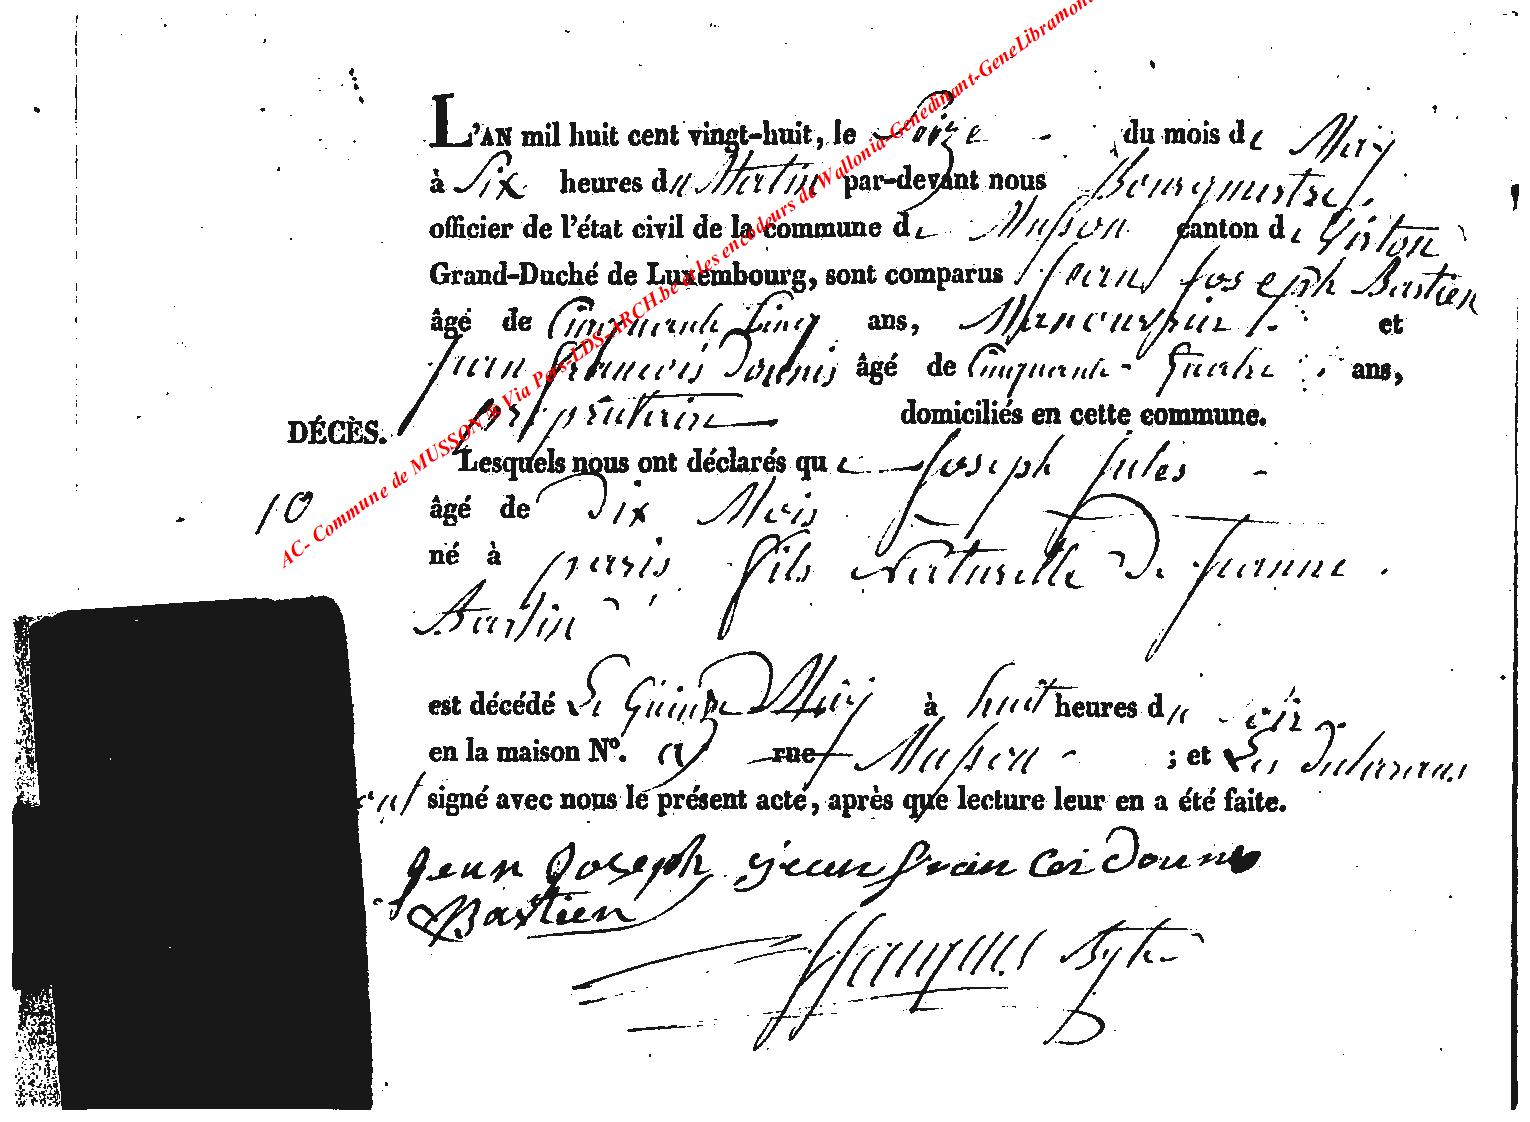 L'AN mil huit cent vingt-huit, le Seize du mois de May
à Six heures du Matin par-devant nous Bourgmestre
officier de l'état civil de la commune de Musson canton de Virton
Grand-Duché de Luxembourg, sont comparus Jean Joseph Bastien
âgé de Cinquante Cinq ans, Manouvrier et
Jean francois Dounis âgé de Cinquante quatre ans,
propriétaire domiciliés en cette commune.
DÉCÈS.
Lesquels nous ont déclarés que Joseph Jules
10
âgé de Dix Mois
né à paris fils Naturelle De Jeanne
est décédé Le Quinze May à huit heures du Soir
en la maison N°. rue Musson ; et Les Déclarans
ont signé avec nous le présent acte, après que lecture leur en a été faite.
jean Joseph jean francoi Dounis
Bastien
AC- Commune de MUSSON Via Pers-LDS-ARCH.be et les encodeurs de Wallonia-Genedinant-GeneLibramont